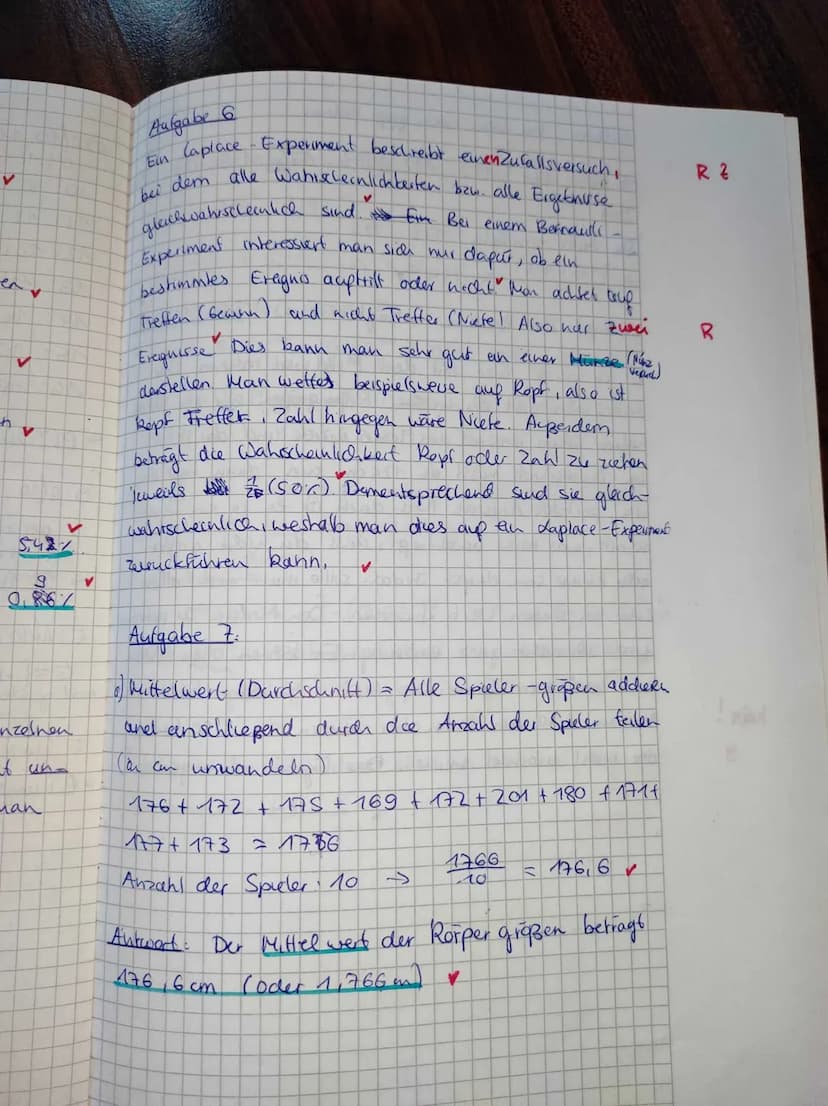 Aufgabe 6
Ein Laplace-Experiment beschreibt einen Zufallsversuch,
R Z
bei dem alle Wahrscheinlichkeiten bzw. alle Ergebnisse
gleichwahrscheinlich sind. Bei einem Bernoulli-
Experiment interessiert man sich nur dafür, ob ein
bestimmtes Ereignis auftritt oder nicht. Man achtet auf
Treffen (Gewinn) und nicht Treffer (Niete) Also nur zwei
R
Ereignisse Dies kann man sehr gut an einer Münze
darstellen. Man wettet beispielsweise auf Kopf, also ist
Kopf Treffer, Zahl hingegen wäre Niete. Außerdem
beträgt die Wahrscheinlichkeit Kopf oder Zahl zu ziehen
jeweils (50%). Dementsprechend sind sie gleich-
wahrscheinlich, weshalb man dies auf ein Laplace-Experiment
zurückführen kann.
Aufgabe 7:
Mittelwert (Durchschnitt) = Alle Spieler-größen addieren
und anschließend durch die Anzahl der Spieler teilen
(in cm umwandeln)
176 + 172 + 175 + 169 + 172 + 201 + 180 + 171 +
177 + 173 = 1766
Anzahl der Spieler: 10 → 1766/10 = 176,6
Antwort: Der Mittelwert der Körpergrößen beträgt
176,6 cm (oder 1,766 m)
en
5,42%
9
nzelnen
t un-
man